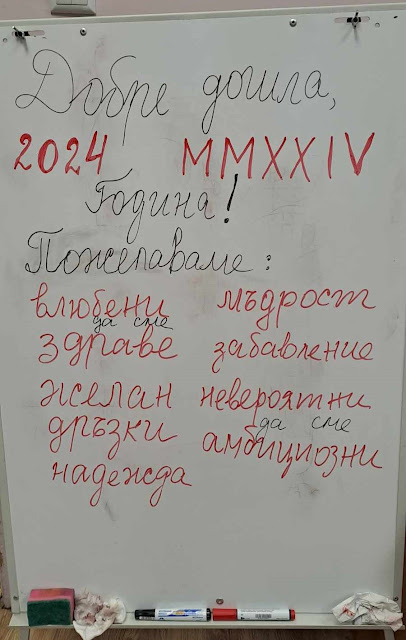 Добре дошла,
2024 MMXXIV
Година!
Пожелаваме:
влюбени мъдрост
да сме
здраве забавление
желан невероятни
дръзки да сме
амбициозни
надежда